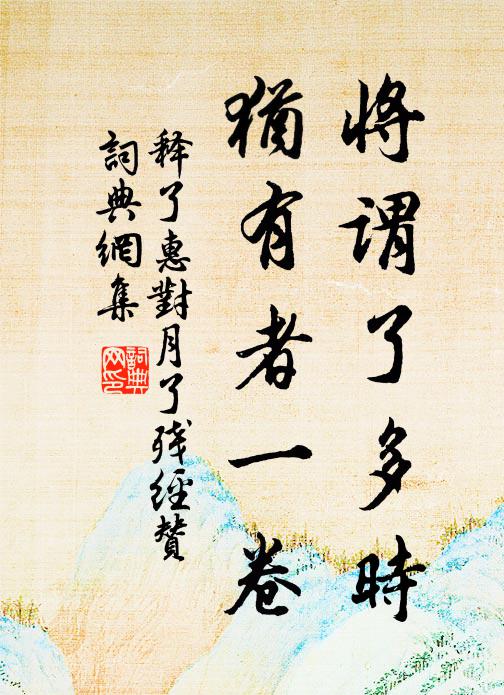 將謂了多時
猶有者一卷
释了惠對月了残經贊
詞典網集
詞典网印